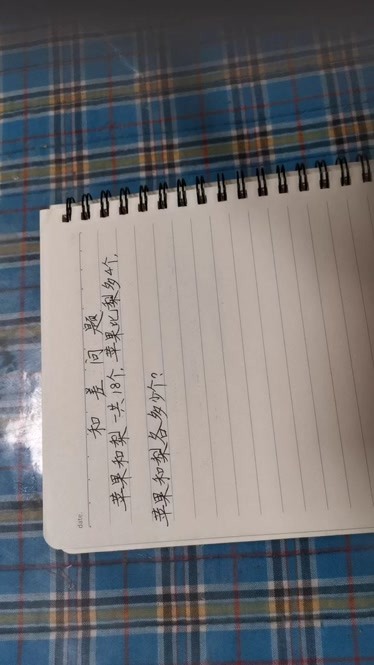 date.
和差问题
苹果和梨一共18个,苹果比梨多4个,
苹果和梨各多少个?